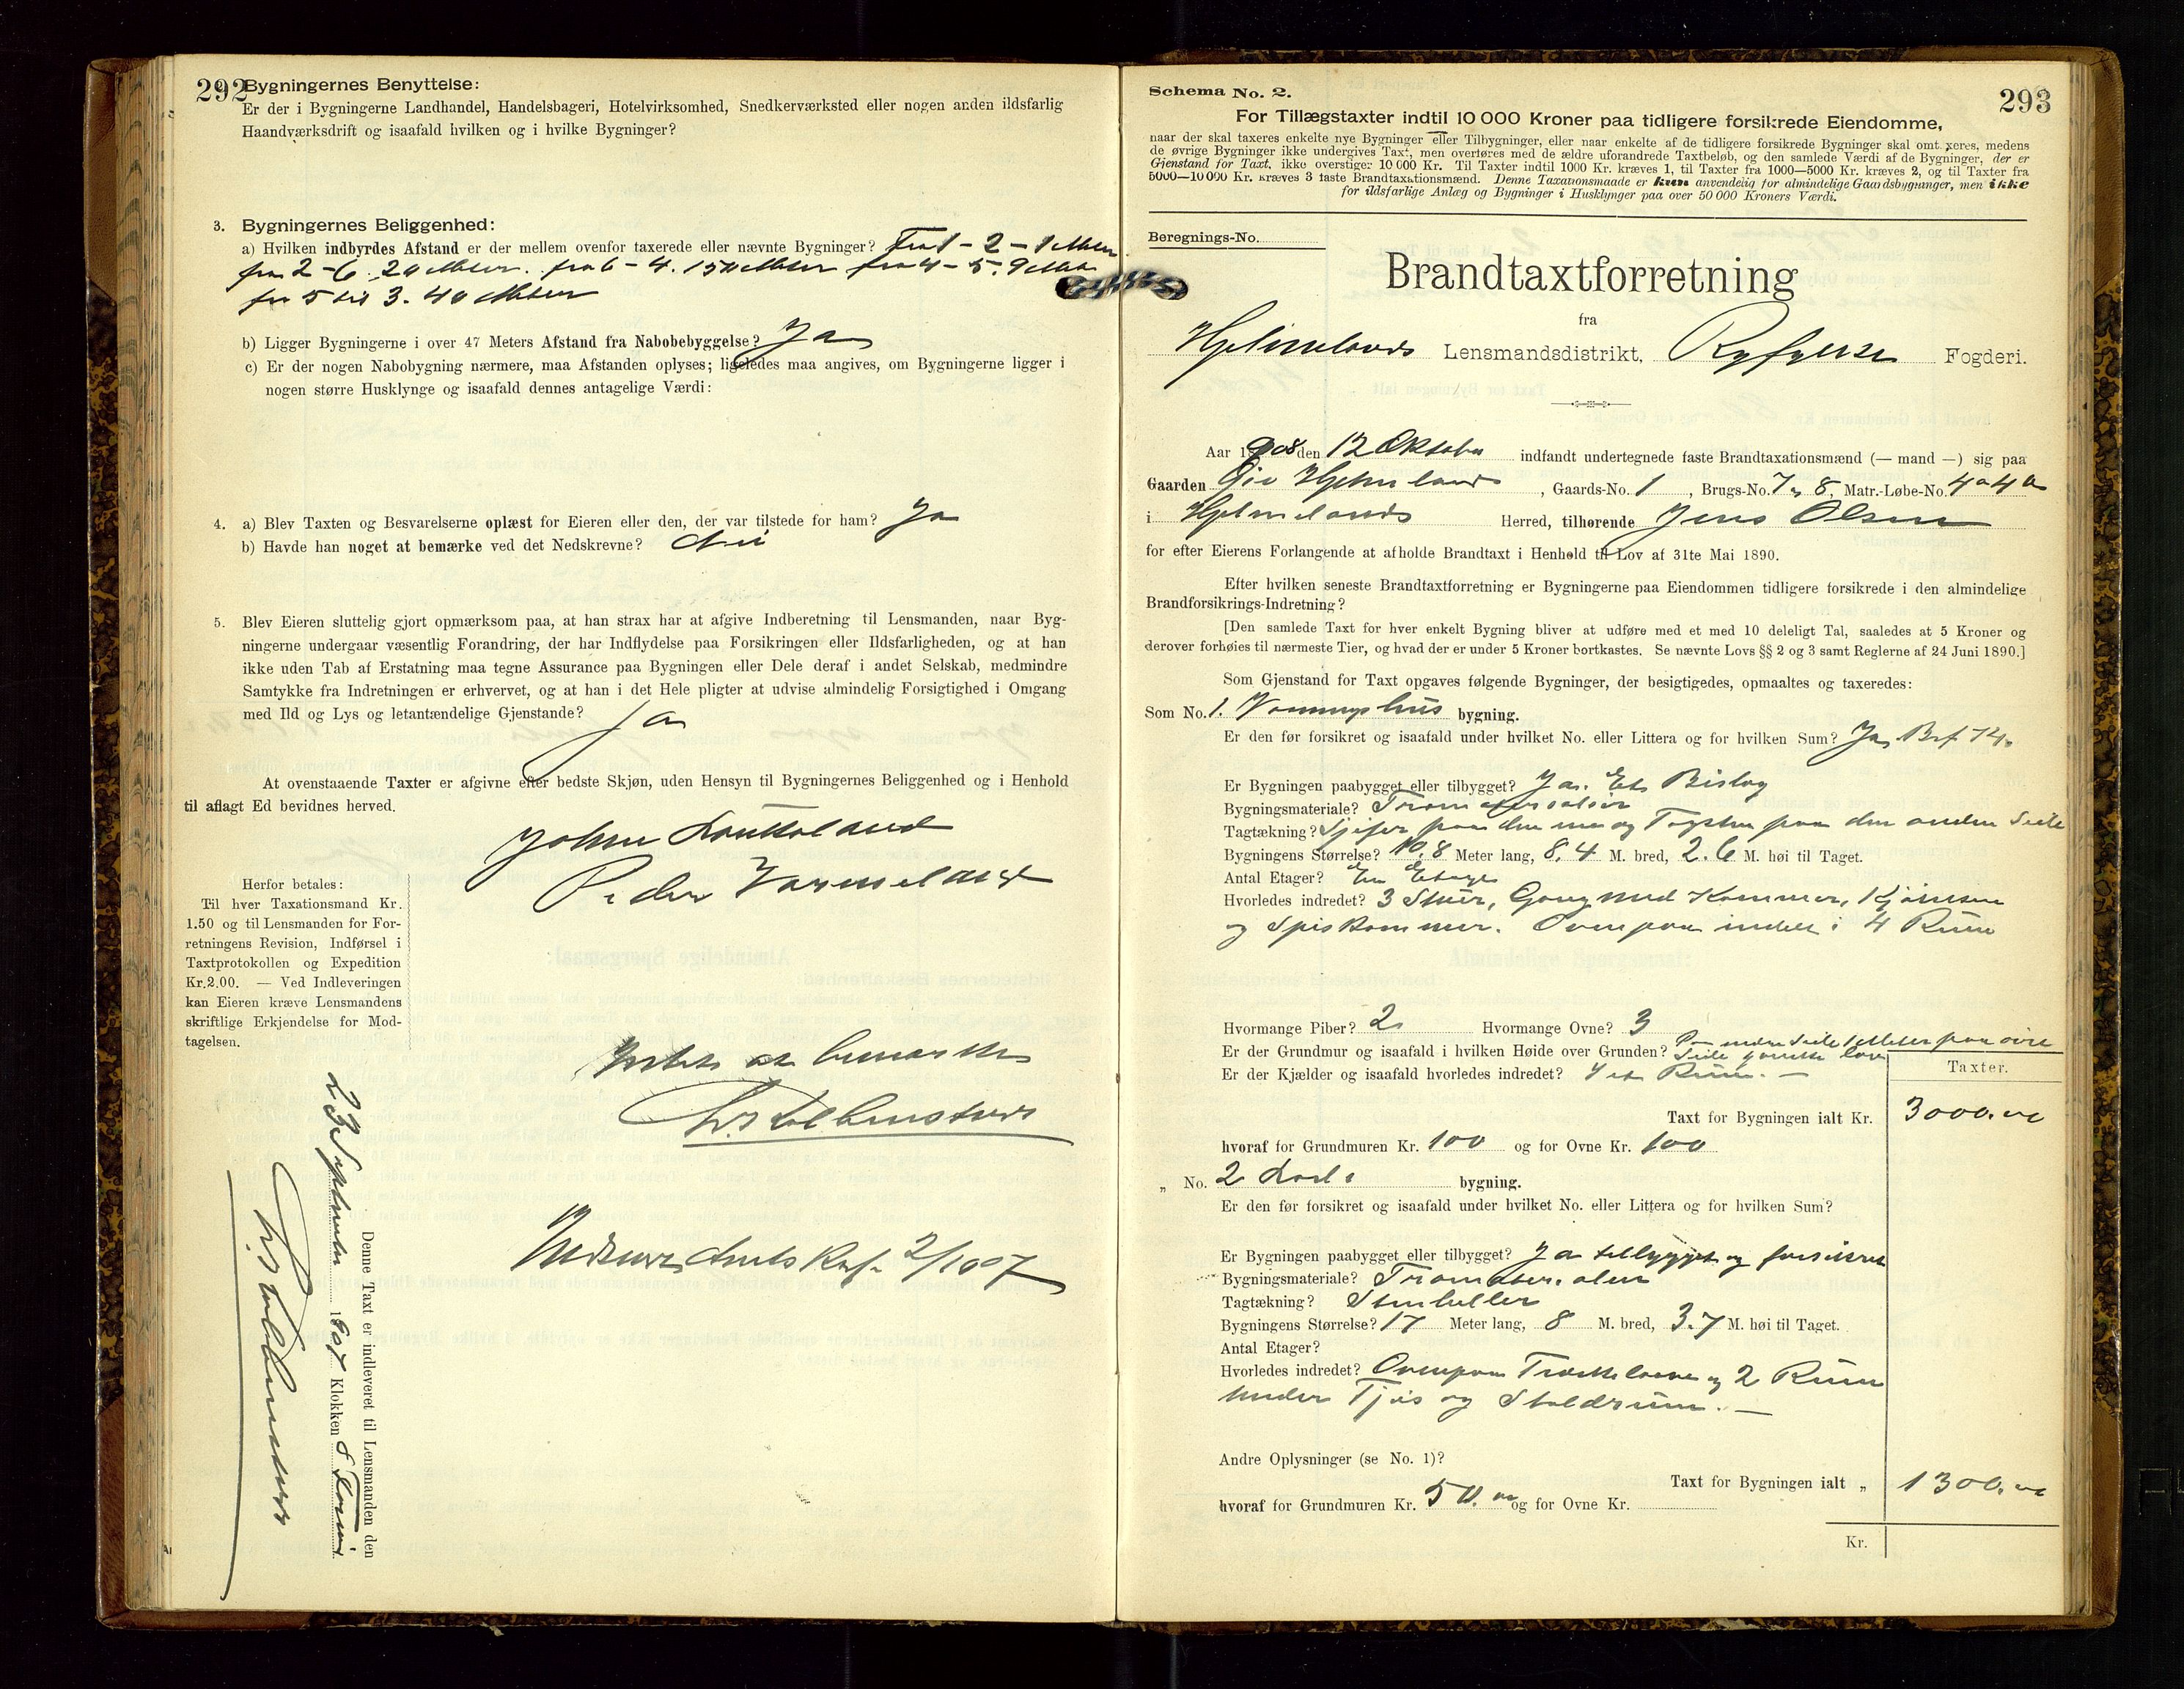 292
Bygningernes Benyttelse:
Er der i Bygningerne Landhandel, Handelsbageri, Hotelvirksomhed, Snedkerværksted eller nogen anden ildsfarlig
Haandværksdrift og isaafald hvilken og i hvilke Bygninger?
3. Bygningernes Beliggenhed:
a) Hvilken indbyrdes Afstand er der mellem ovenfor taxerede eller nævnte Bygninger? Fra 1 - 2 - 1 Meter
fra 2 - 6. 20 Meter. fra 6 - 4. 150 Meter fra 4 - 5. 9 Meter
fra 5 til 3. 40 Meter
b) Ligger Bygningerne i over 47 Meters Afstand fra Nabobebyggelse? Ja
c) Er der nogen Nabobygning nærmere, maa Afstanden oplyses; ligeledes maa angives, om Bygningerne ligger i
nogen større Husklynge og isaafald dennes antagelige Værdi:
4. a) Blev Taxten og Besvarelserne oplæst for Eieren eller den, der var tilstede for ham? Ja
b) Havde han noget at bemærke ved det Nedskrevne? Nei
5. Blev Eieren sluttelig gjort opmærksom paa, at han strax har at afgive Indberetning til Lensmanden, naar Byg-
ningerne undergaar væsentlig Forandring, der har Indflydelse paa Forsikringen eller Ildsfarligheden, og at han
ikke uden Tab af Erstatning maa tegne Assurance paa Bygningen eller Dele deraf i andet Selskab, medmindre
Samtykke fra Indretningen er erhvervet, og at han i det Hele pligter at udvise almindelig Forsigtighed i Omgang
med Ild og Lys og letantændelige Gjenstande? Ja
At ovenstaaende Taxter er afgivne efter bedste Skjøn, uden Hensyn til Bygningernes Beliggenhed og i Henhold
til aflagt Ed bevidnes herved.
John
Peder
Herfor betales:
Til hver Taxationsmand Kr.
1.50 og til Lensmanden for For-
retningens Revision, Indførsel i
Taxtprotokollen og Expedition
Kr. 2.00. — Ved Indleveringen
kan Eieren kræve Lensmandens
skriftlige Erkjendelse for Mod-
tagelsen.
Intet at bemærke
2/10 07
Denne Taxt er indleveret til Lensmanden den
23 September 1907 Klokken 8 Form
Schema No. 2.
293
For Tillægstaxter indtil 10 000 Kroner paa tidligere forsikrede Eiendomme,
naar der skal taxeres enkelte nye Bygninger eller Tilbygninger, eller naar enkelte af de tidligere forsikrede Bygninger skal omtaxeres, medens
de øvrige Bygninger ikke undergives Taxt, men overføres med de ældre uforandrede Taxtbeløb, og den samlede Værdi af de Bygninger, der er
Gjenstand for Taxt, ikke overstiger 10 000 Kr. Til Taxter indtil 1000 Kr. kræves 1, til Taxter fra 1000—5000 Kr. kræves 2, og til Taxter fra
5000—10 000 Kr. kræves 3 faste Brandtaxationsmænd. Denne Taxationsmaade er kun anvendelig for almindelige Gaardsbygninger, men ikke
for ildsfarlige Anlæg og Bygninger i Husklynger paa over 50 000 Kroners Værdi.
Beregnings-No.
Brandtaxtforretning
fra
Hjelmelands Lensmandsdistrikt, Ryfylke Fogderi.
Aar 1908 den 12 Oktober indfandt undertegnede faste Brandtaxationsmænd (— mand —) sig paa
Gaarden Hjelmeland, Gaards-No. 1, Brugs-No. 7 og 8, Matr.-Løbe-No. 4
i Hjelmelands Herred, tilhørende Jens Olsen
for efter Eierens Forlangende at afholde Brandtaxt i Henhold til Lov af 31te Mai 1890.
Efter hvilken seneste Brandtaxtforretning er Bygningerne paa Eiendommen tidligere forsikrede i den almindelige
Brandforsikrings-Indretning?
[Den samlede Taxt for hver enkelt Bygning bliver at udføre med et med 10 deleligt Tal, saaledes at 5 Kroner og
derover forhøies til nærmeste Tier, og hvad der er under 5 Kroner bortkastes. Se nævnte Lovs §§ 2 og 3 samt Reglerne af 24 Juni 1890.]
Som Gjenstand for Taxt opgaves følgende Bygninger, der besigtigedes, opmaaltes og taxeredes:
Som No. 1. Vaaningshus bygning.
Er den før forsikret og isaafald under hvilket No. eller Littera og for hvilken Sum? Ja
Er Bygningen paabygget eller tilbygget? Ja. Et Bislag
Bygningsmateriale? Træmaterialier
Tagtækning? Skjifer paa den ene og Tagsten paa den anden Side
Bygningens Størrelse? 10,8 Meter lang, 8,4 M. bred, 2.6 M. høi til Taget.
Antal Etager? En Etage
Hvorledes indredet? 3 Stuer, Gang med Kammer, Kjøkken
og Spiskammer. Ovenpaa indelt i 4 Rum
Hvormange Piber? 2 Hvormange Ovne? 3
Er der Grundmur og isaafald i hvilken Høide over Grunden? Paa nedre Side 1 Meter paa øvre
Side ganske lav
Er der Kjælder og isaafald hvorledes indredet? I et Rum. —
Taxter.
Taxt for Bygningen ialt Kr. 3000.00
hvoraf for Grundmuren Kr. 100 og for Ovne Kr. 100
„ No. 2 Lade bygning.
Er den før forsikret og isaafald under hvilket No. eller Littera og for hvilken Sum?
Er Bygningen paabygget eller tilbygget? Ja tilbygget og forsikret
Bygningsmateriale? Træmaterialier
Tagtækning? Stenheller
Bygningens Størrelse? 17 Meter lang, 8 M. bred, 3.7 M. høi til Taget.
Antal Etager?
Hvorledes indredet? Ovenpaa Træskelaave og 2 Rum
under Fjøs og Staldrum. —
Andre Oplysninger (se No. 1)?
Taxt for Bygningen ialt „ 1300.00
hvoraf for Grundmuren Kr. 50.00 og for Ovne Kr.
Kr.